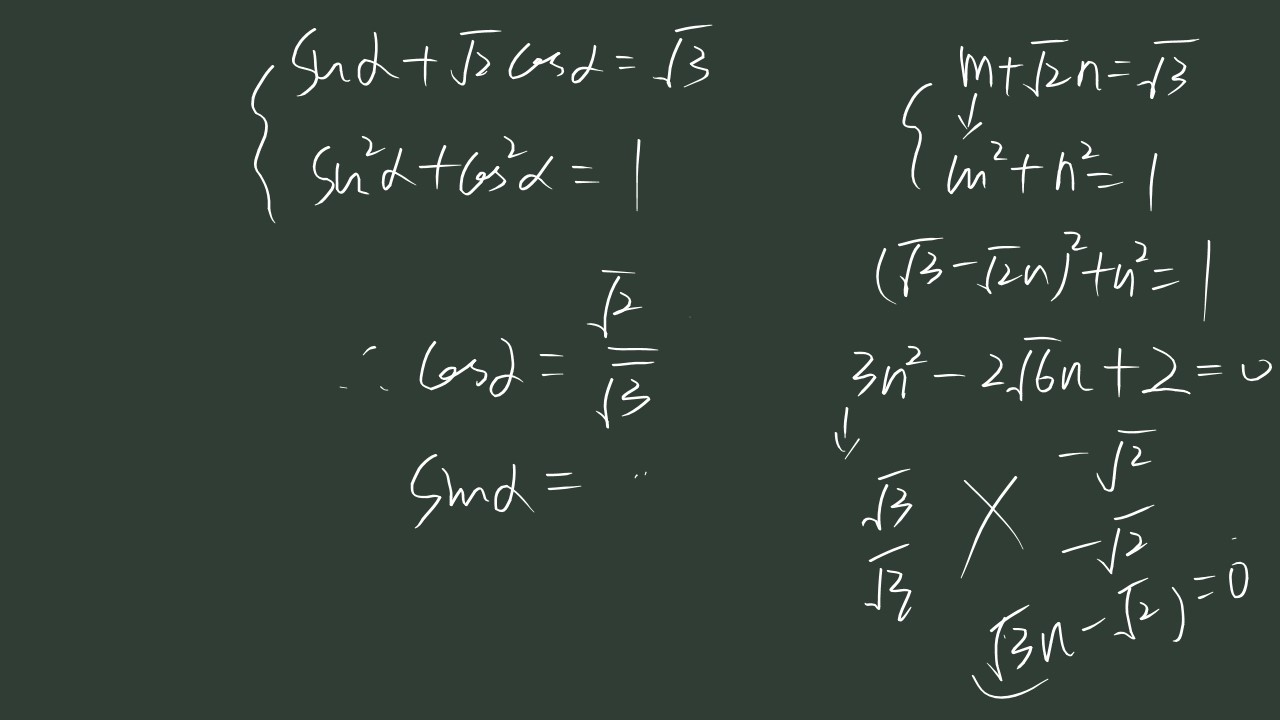 sinα+√2cosα=√3
sin²α+cos²α=1
∴ cosα=√2/√3
sinα= ..
m+√2n=√3
m²+n²=1
(√3-√2n)²+n²=1
3n²-2√6n+2=0
√3 -√2
√3 -√2
√3n-√2)=0